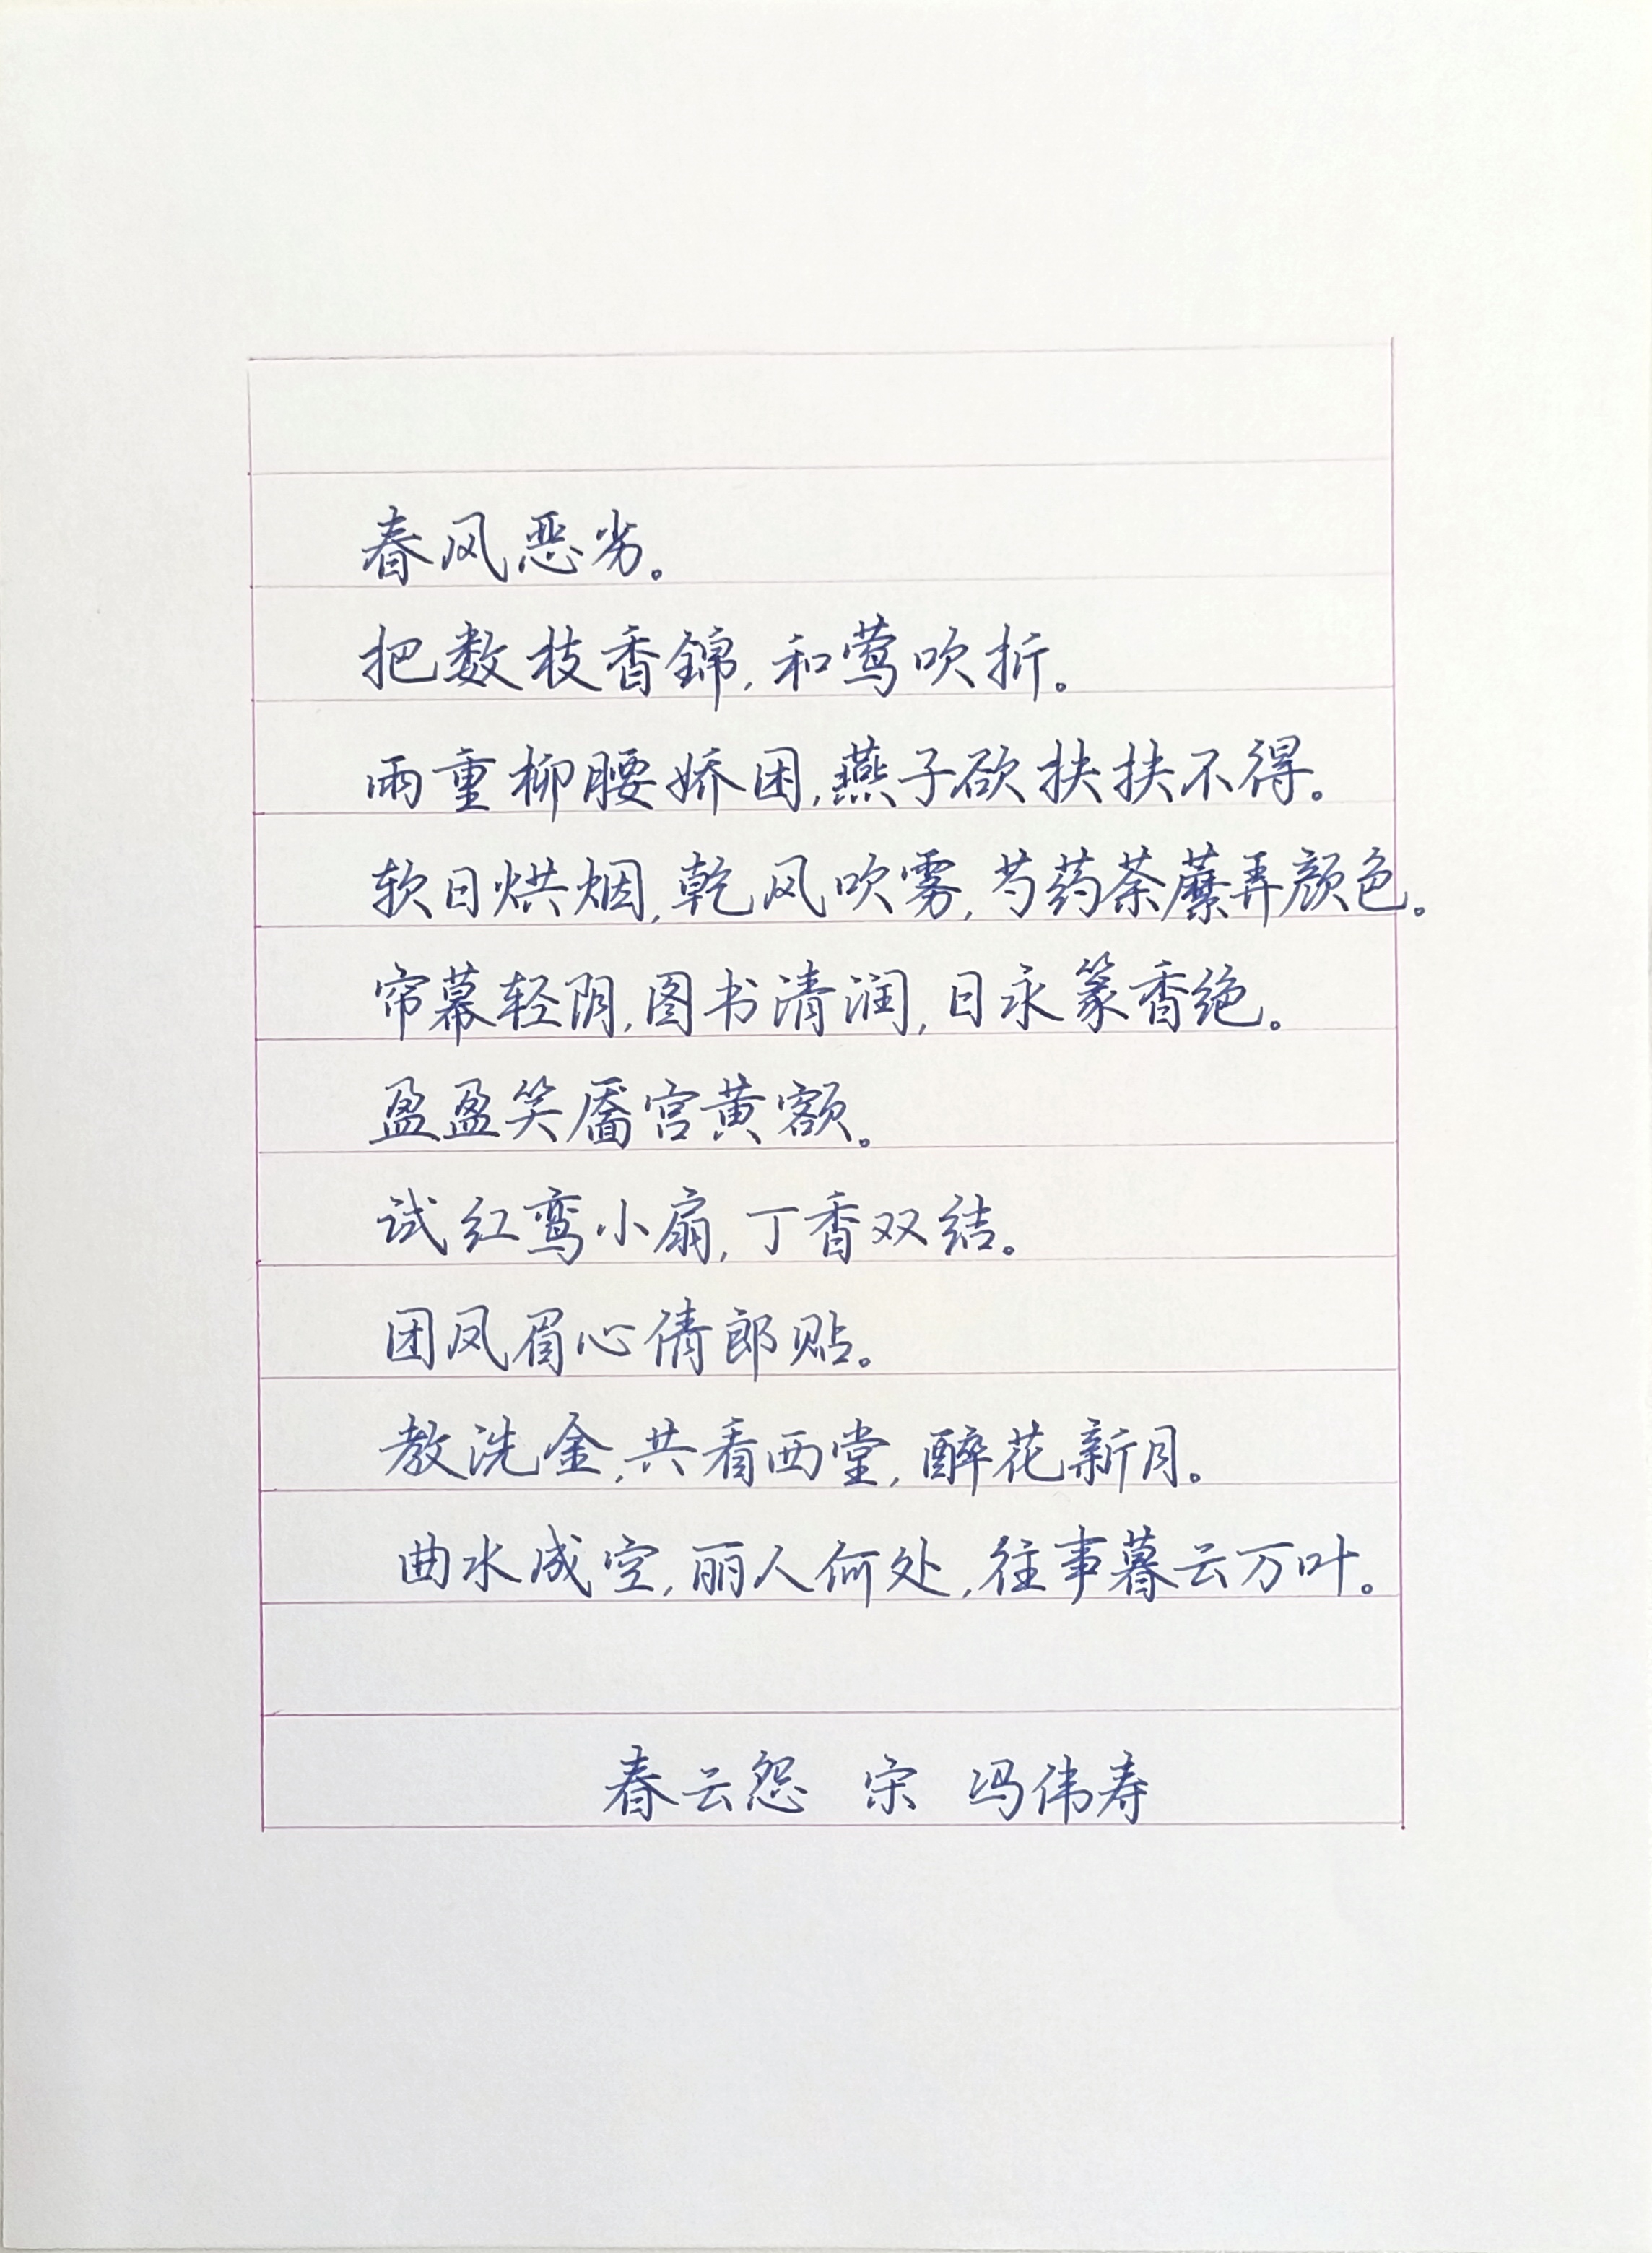 春风恶劣。
把数枝香锦,和莺吹折。
雨重柳腰娇困,燕子欲扶扶不得。
软日烘烟,乾风吹雾,芍药荼蘼弄颜色。
帘幕轻阴,图书清润,日永篆香绝。
盈盈笑靥宫黄额。
试红鸾小扇,丁香双结。
团凤眉心倩郎贴。
教洗金,共看西堂,醉花新月。
曲水成空,丽人何处,往事暮云万叶。
春云怨 宋 冯伟寿